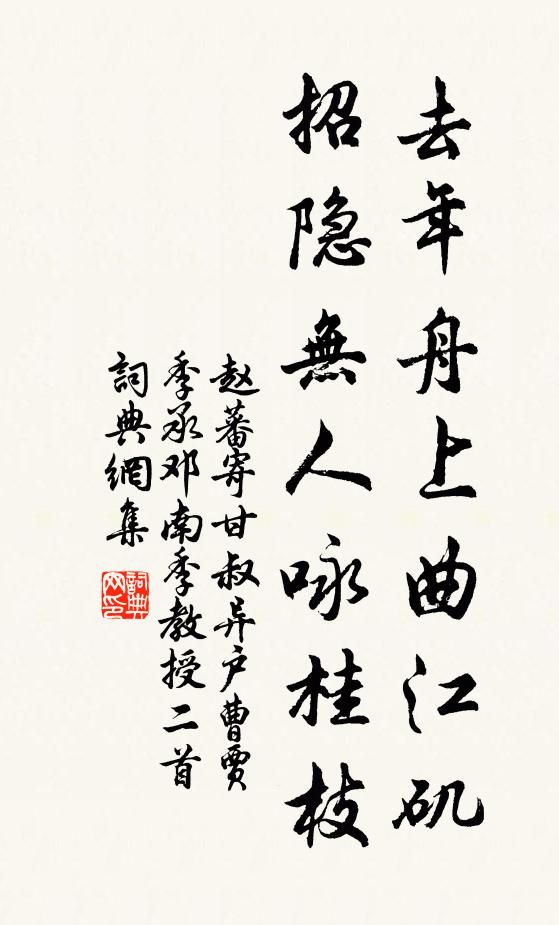 去年舟上曲江矶
招隐無人咏桂枝
赵蕃寄甘叔异户曹贾
季承邓南季教授二首
詞典網集
詞典网印